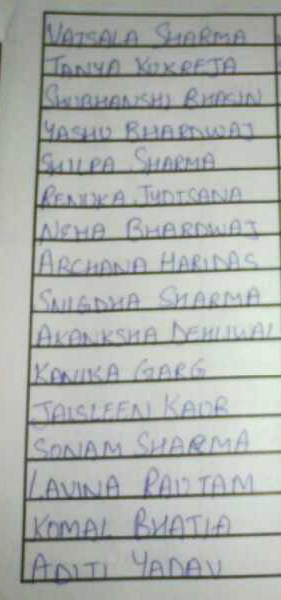 VATSALA SHARMA
TANYA KUKREJA
SHUBHANSHI BHASIN
YASHU BHARDWAJ
SHILPA SHARMA
RENUKA
NEHA BHARDWAJ
ARCHANA HARIDAS
SNIGDHA SHARMA
AKANKSHA DEHLIWAL
KANIKA GARG
JAISLEEN KAUR
SONAM SHARMA
LAVINA RAUTAM
KOMAL BHATIA
ADITI YADAV